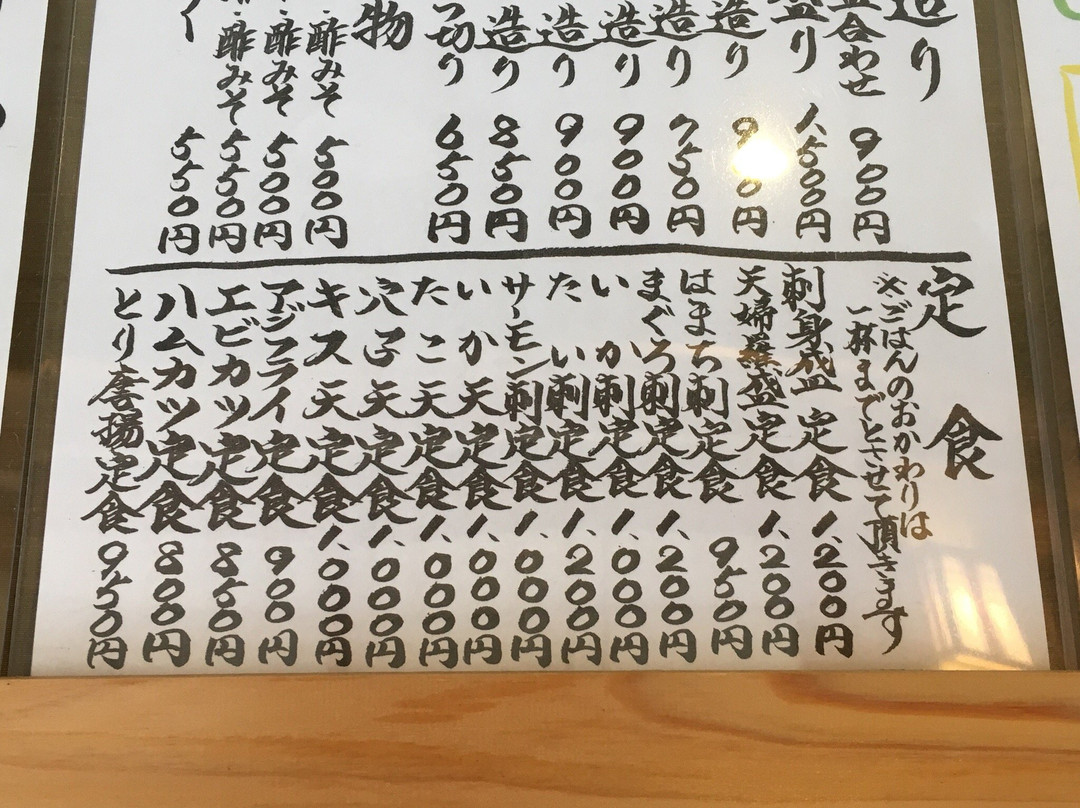 造り
盛合わせ 900円
盛り 1,500円
造り
造り 750円
造り 900円
造り 900円
造り 850円
つ切り 650円
物
酢みそ 500円
・酢みそ 500円
・酢みそ 550円
550円
定食
※ごはんのおかわりは
一杯までとさせて頂きます
刺身盛定食 1,200円
天婦羅盛定食 1,200円
はまち刺定食 950円
まぐろ刺定食 1,200円
いか刺定食 1,000円
たい刺定食 1,200円
サーモン刺定食 1,000円
いか天定食 1,000円
たこ天定食 1,000円
穴子天定食 1,000円
キス天定食 1,000円
アジフライ定食 900円
エビカツ定食 850円
ハムカツ定食 800円
とり唐揚定食 950円